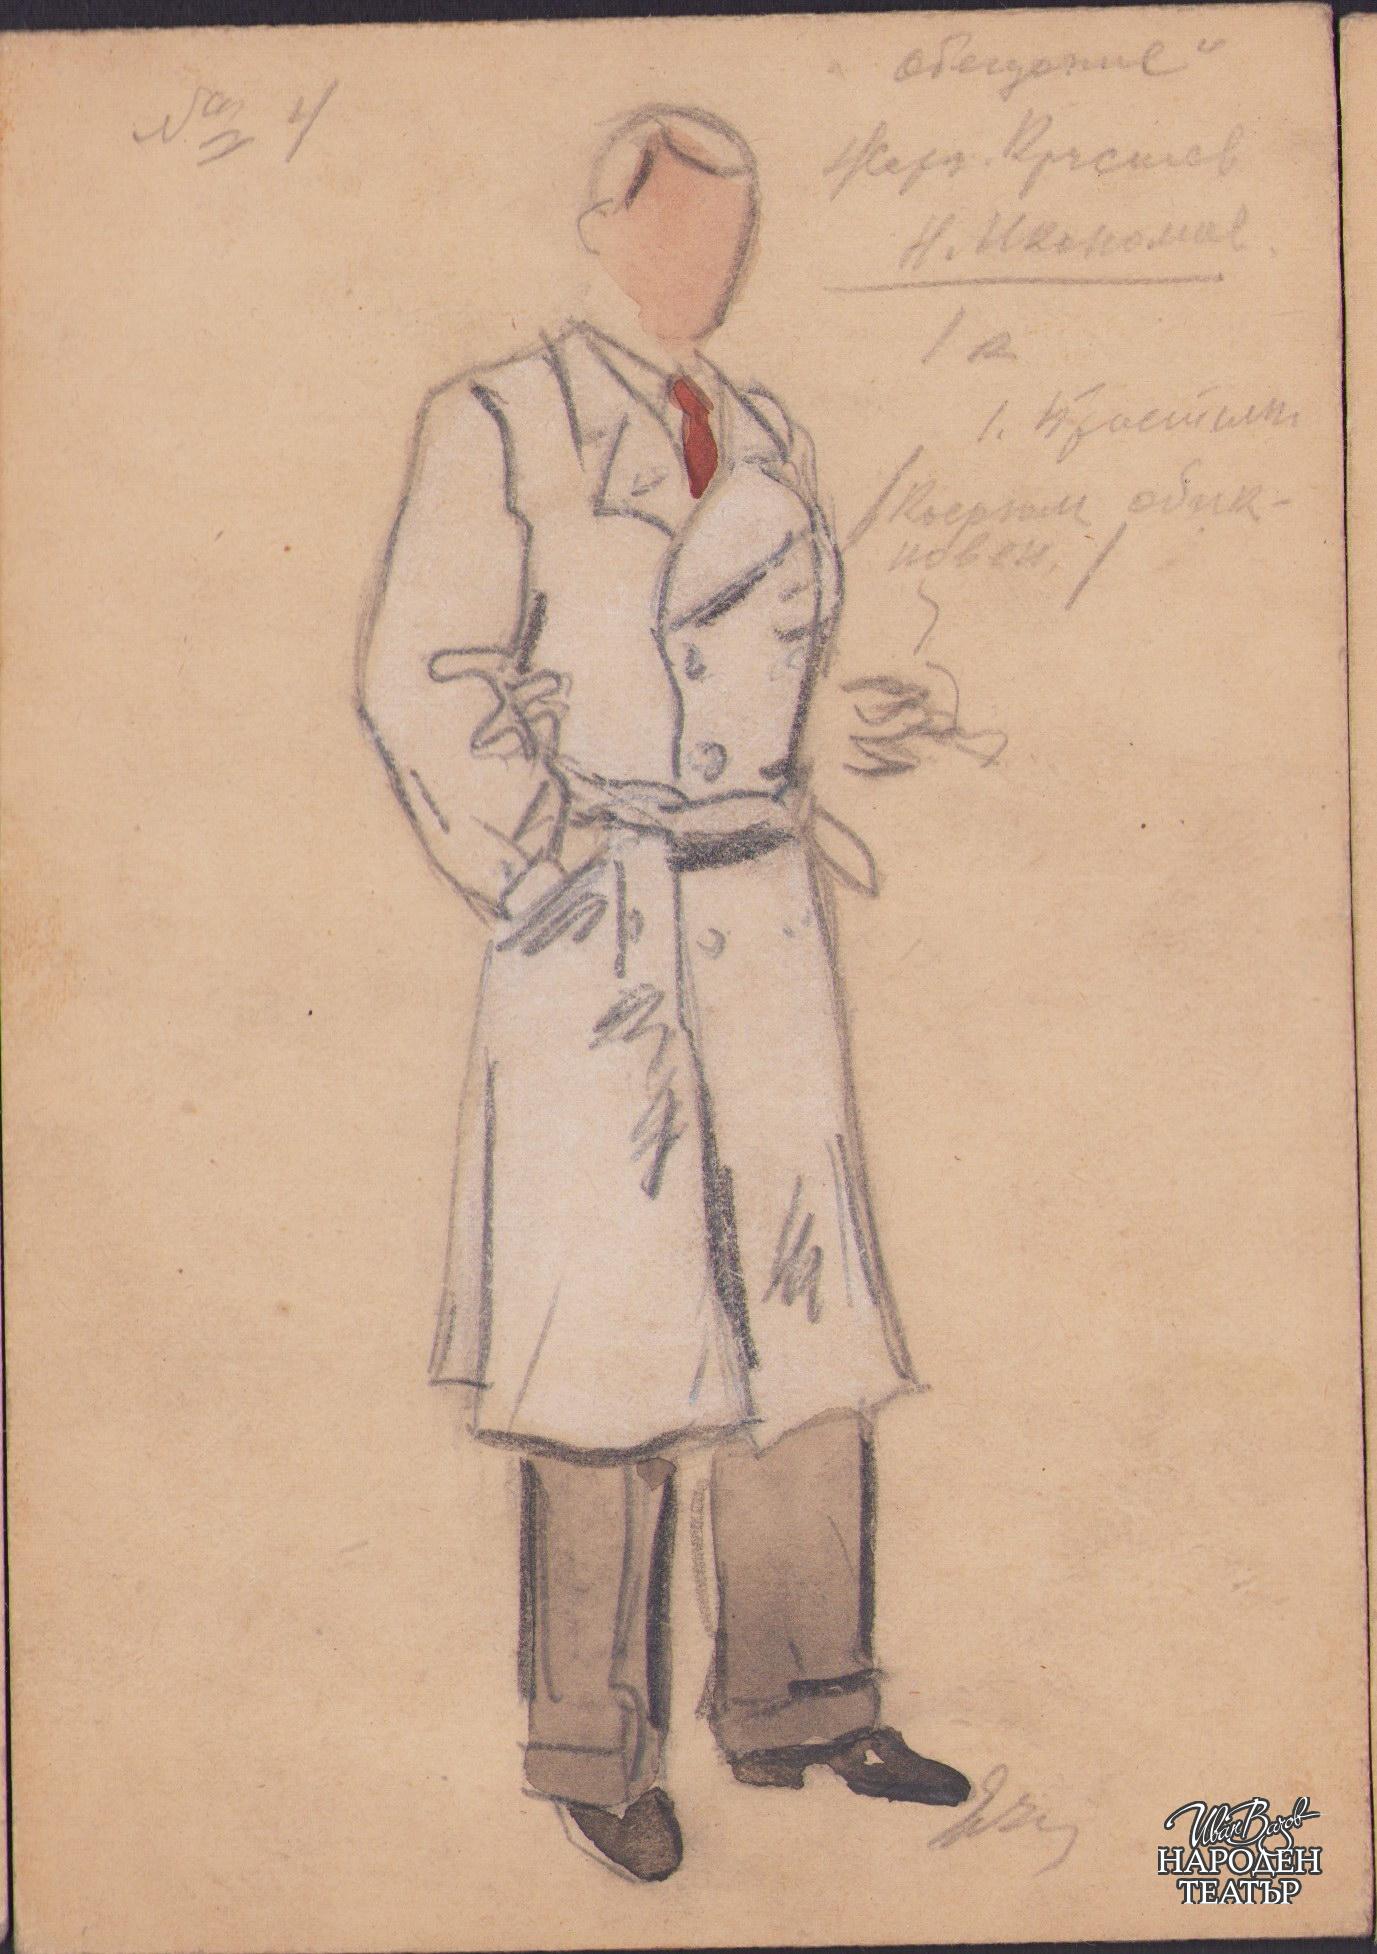 № 4
"Обещание"
Жорж Кръстев
Н. Икономов.
I к.
1. Престилка
/Костюм обик-
новен./
Иван Вазов
НАРОДЕН
ТЕАТЪР